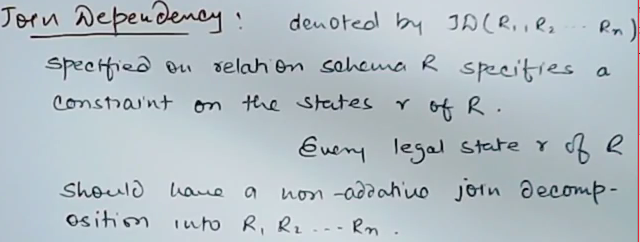 Join Dependency : denoted by JD(R1, R2 ... Rn)
specified on relation schema R specifies a
constraint on the states r of R.
Every legal state r of R
should have a non-additive join decomp-
osition into R1 R2 --- Rn.